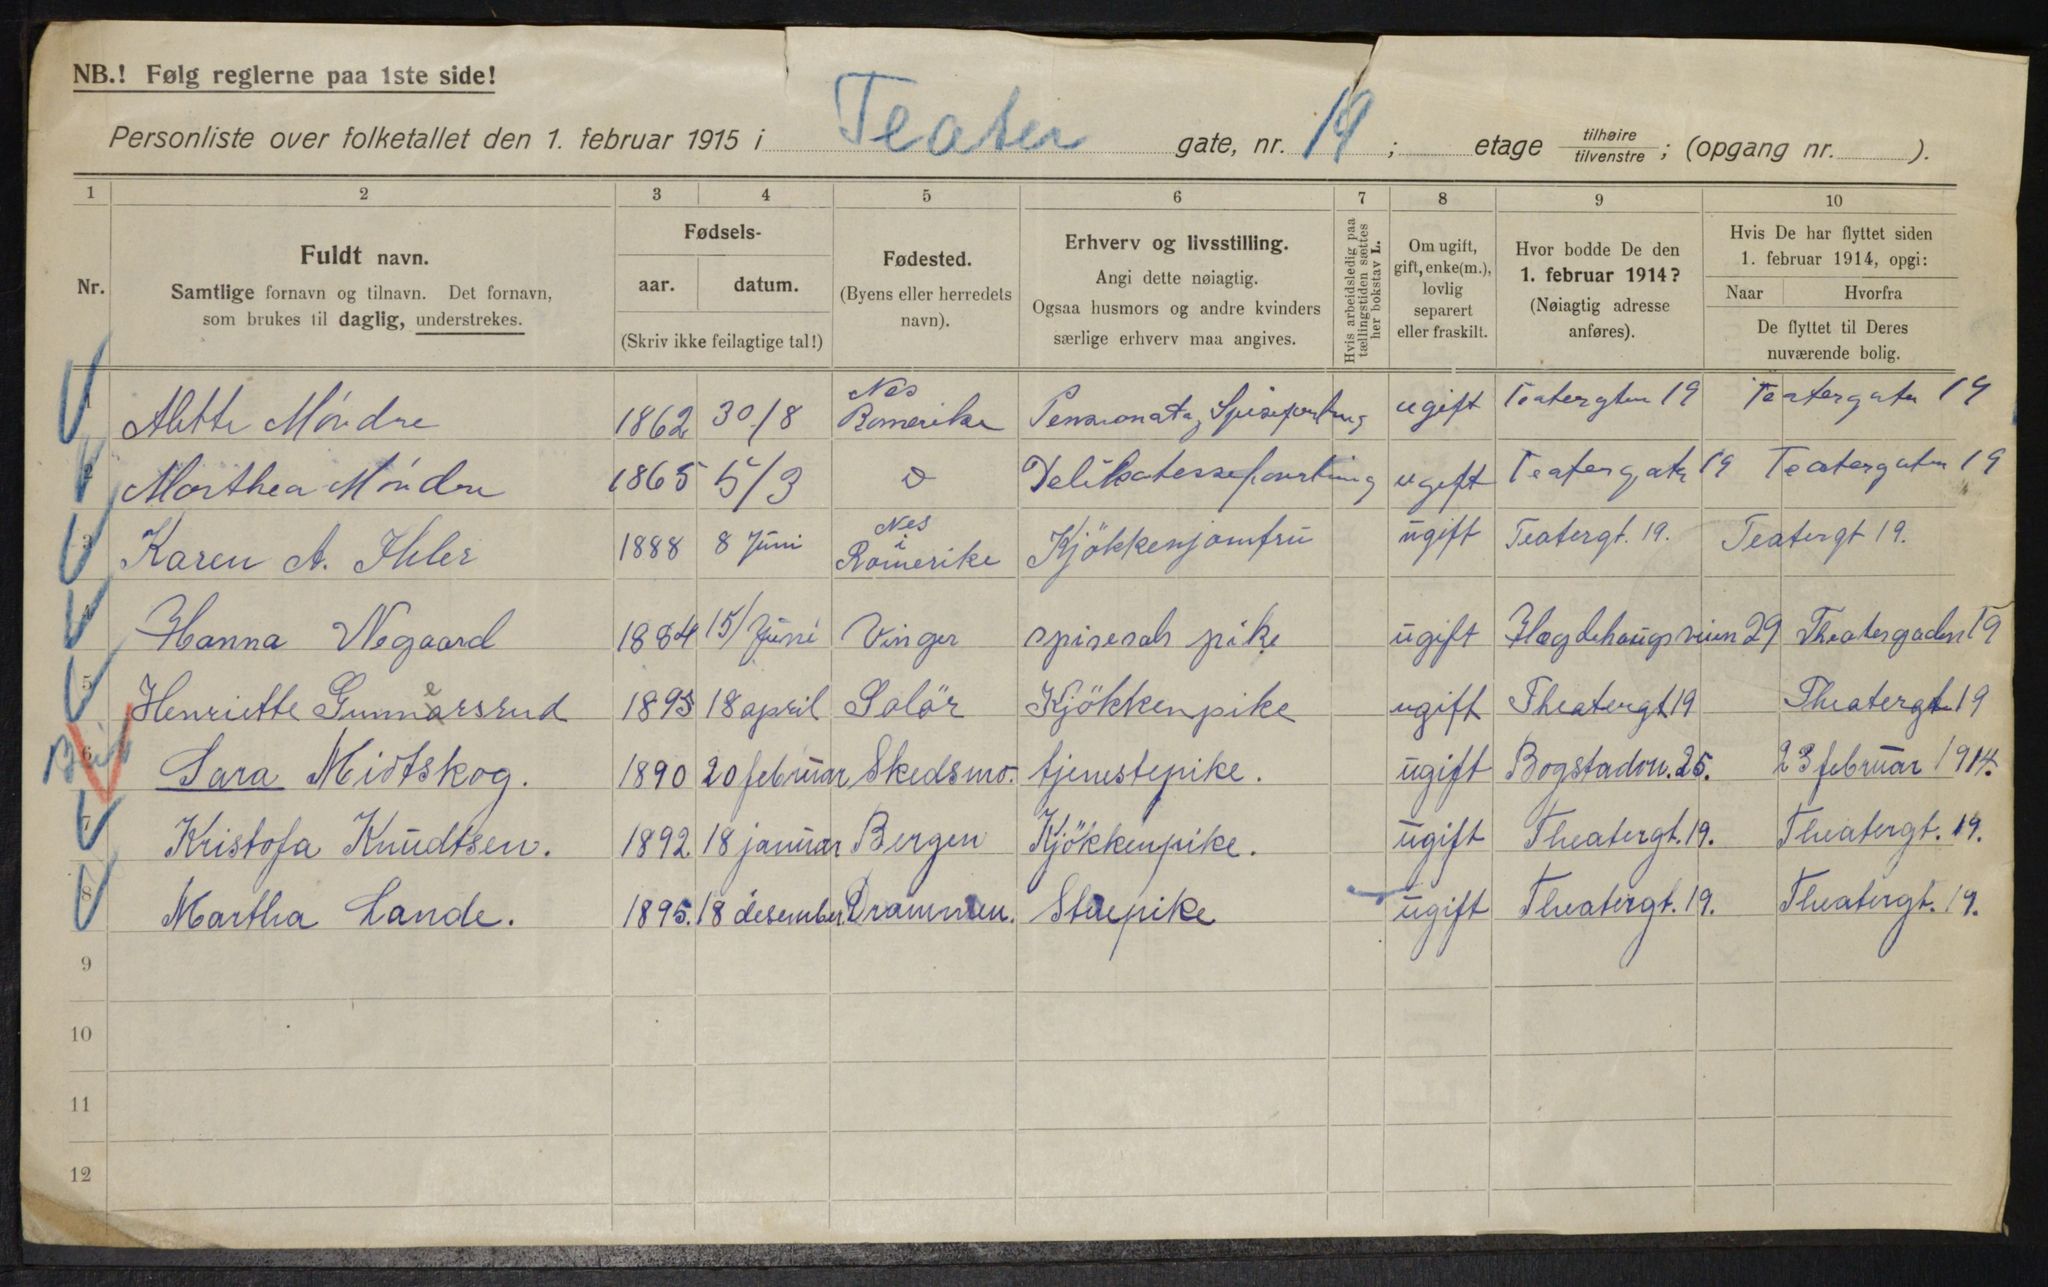 NB.! Følg reglerne paa 1ste side!
Personliste over folketallet den 1. februar 1915 i Teater gate, nr. 19; etage tilhøire tilvenstre; (opgang nr. ).
1 2 3 4 5 6 7 8 9 10
Nr.
Fuldt navn.
Samtlige fornavn og tilnavn. Det fornavn,
som brukes til daglig, understrekes.
Fødsels-
aar. datum.
(Skriv ikke feilagtige tal!)
Fødested.
(Byens eller herredets
navn).
Erhverv og livsstilling.
Angi dette nøiagtig.
Ogsaa husmors og andre kvinders
særlige erhverv maa angives.
Hvis arbeidsledig paa
tællingstiden sættes
her bokstav L.
Om ugift,
gift, enke(m.),
lovlig
separert
eller fraskilt.
Hvor bodde De den
1. februar 1914?
(Nøiagtig adresse
anføres).
Hvis De har flyttet siden
1. februar 1914, opgi:
Naar Hvorfra
De flyttet til Deres
nuværende bolig.
Alette Möndre 1862 30/8 Nes Romerike ugift Teatergten 19 Teatergaten 19
2 Marthea Möndre 1865 5/3 Delikatesseforretning ugift Teatergate 19 Teatergaten 19
3 Karen A. Ihler 1888 8 Juni Nes i Romerike Kjökkenjomfru ugift Teatergt. 19. Teatergt 19.
4 Hanna Negaard 1884 15/Juni Vinger spisesals pike ugift Hægdehaugsveien 29 Theatergaden 19
5 Henriette Gunnersrud 1893 18 april Solör Kjökkenpike ugift Theatergt 19 Theatergt 19
6 Sara Midtskog. 1890 20 februar Skedsmo. tjenestepike. ugift Bogstadvn. 25. 23 februar 1914.
7 Kristofa Knudtsen. 1892 18 januar Bergen Kjökkenpike. ugift Theatergt. 19. Theatergt. 19.
8 Martha Lande. 1895. 18 desember. Drammen. Stuepike ugift Theatergt. 19. Theatergt. 19.
9
10
11
12